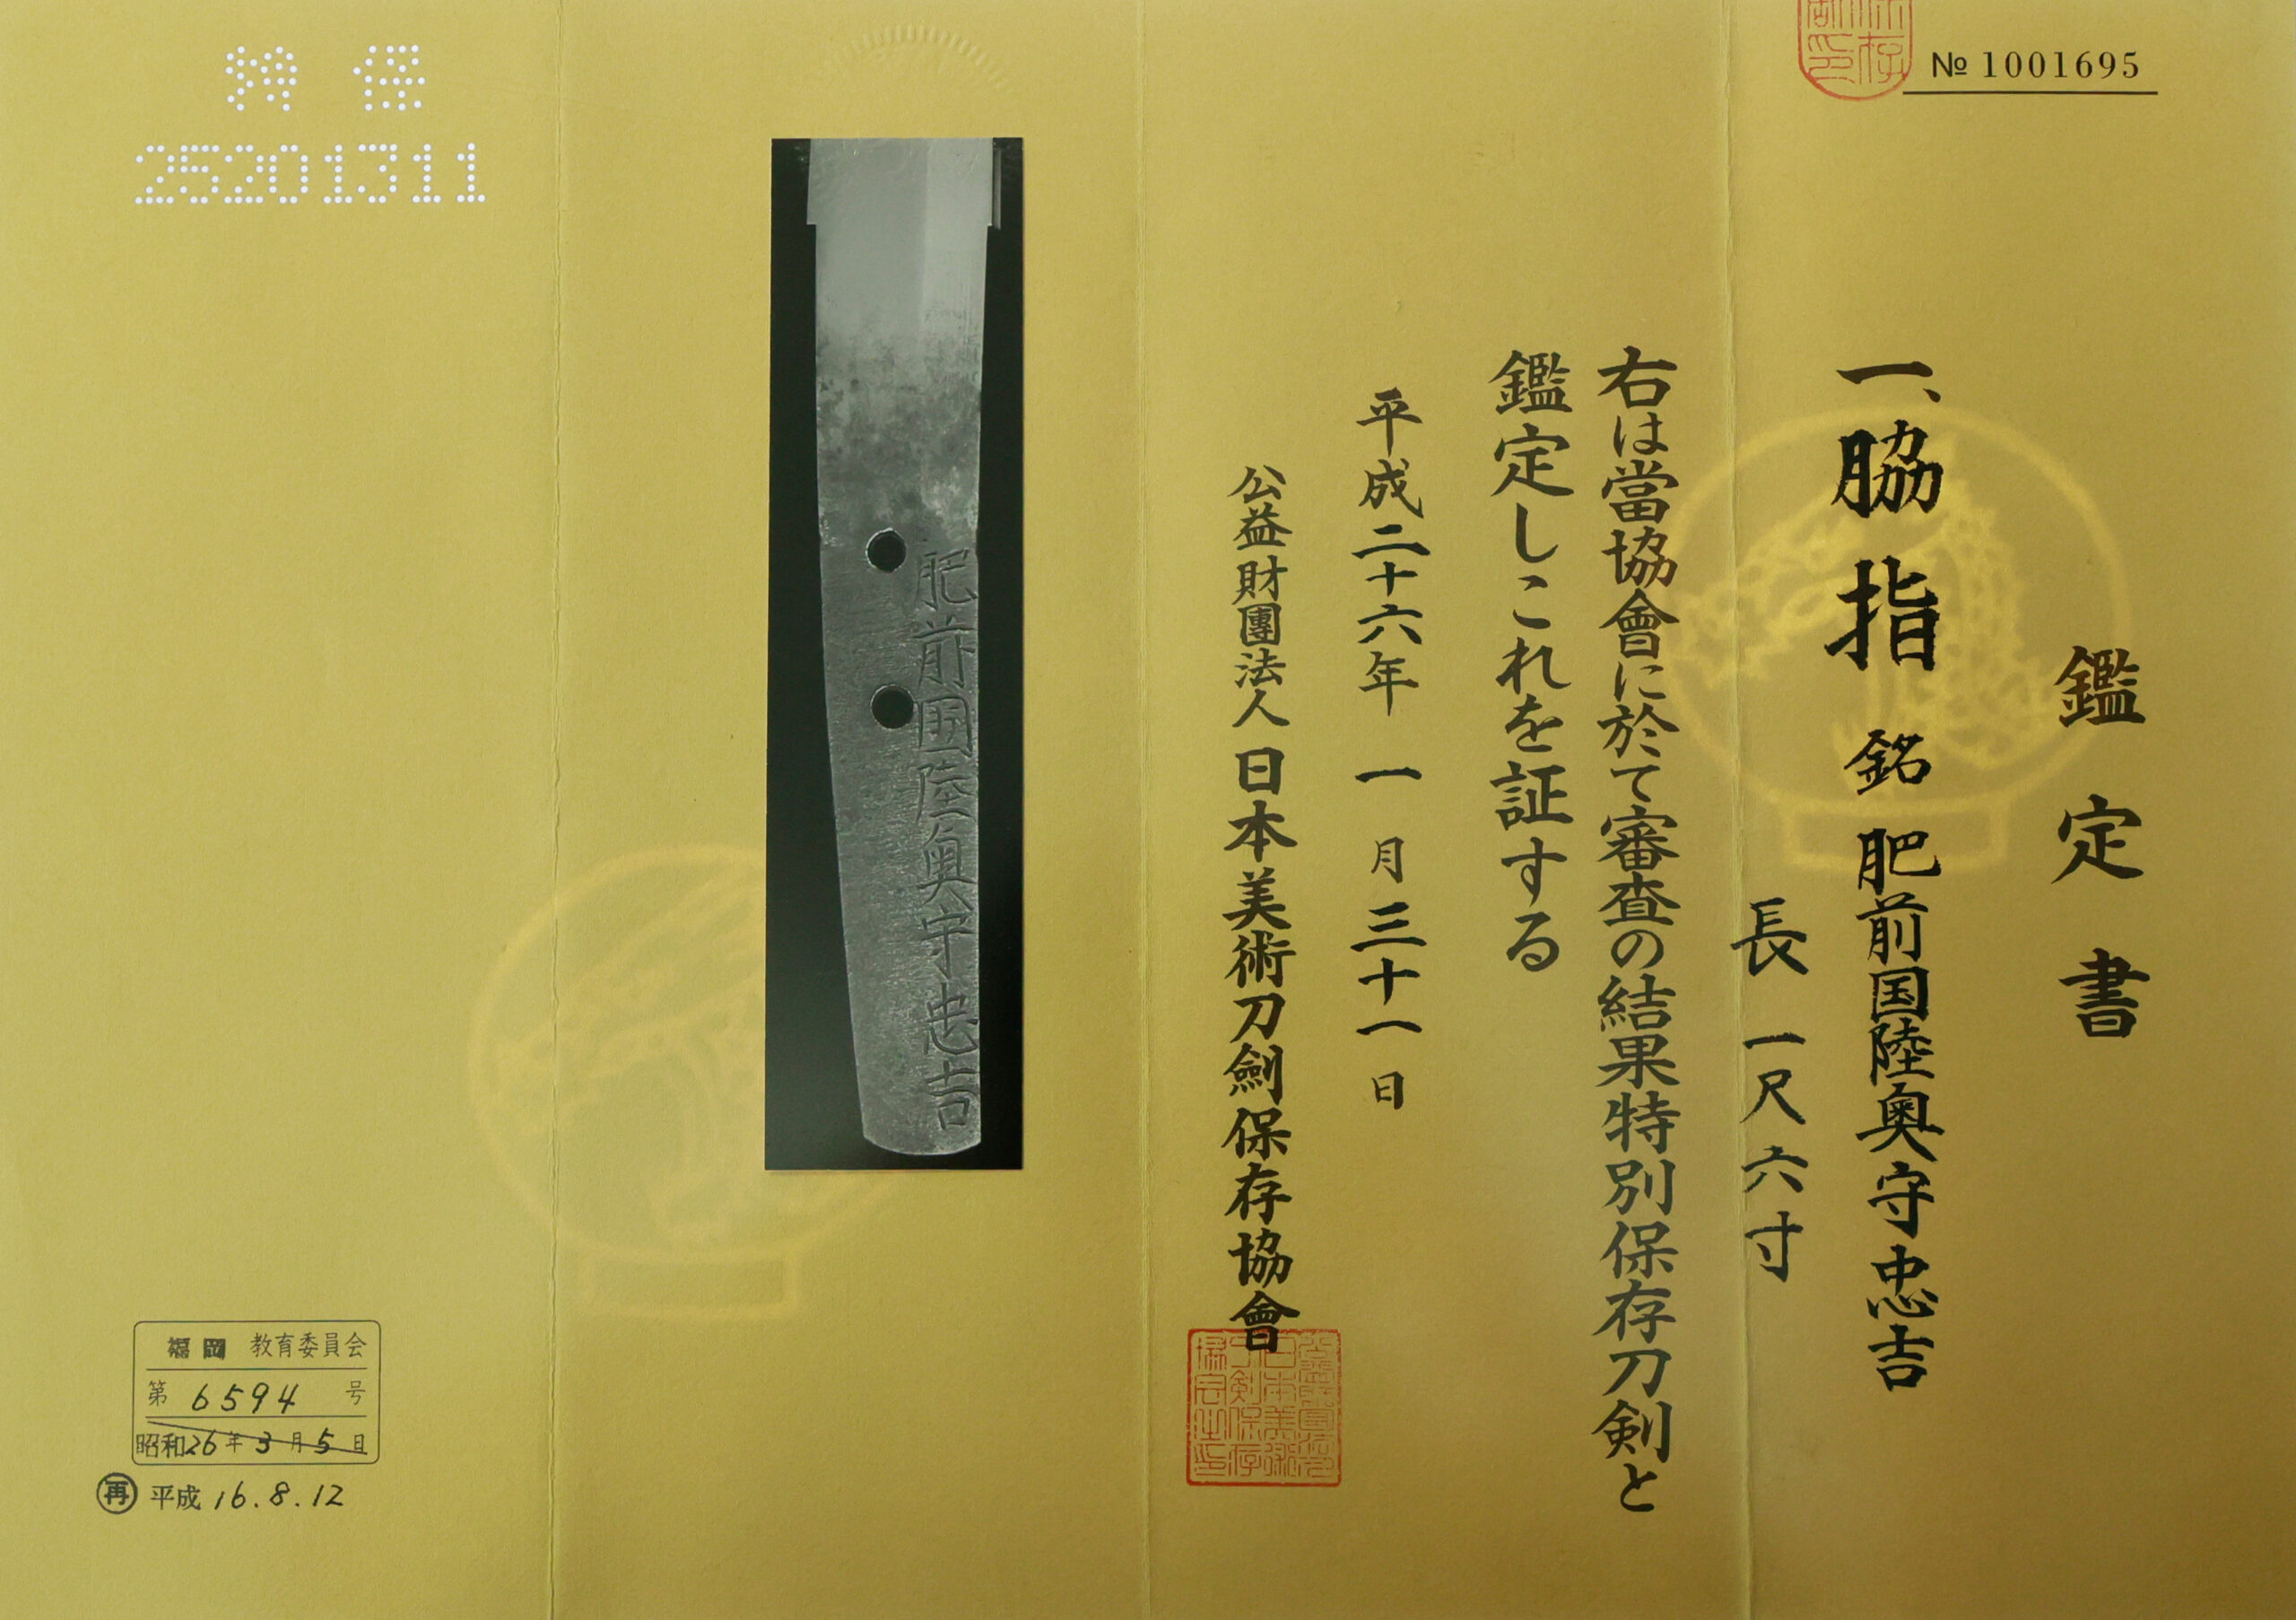 № 1001695
鑑定書
一、脇指 銘 肥前国陸奥守忠吉
長 一尺六寸
右は當協會に於て審査の結果特別保存刀剣と
鑑定しこれを証する
平成二十六年 一月三十一日
公益財團法人 日本美術刀劍保存協會
肥前国陸奥守忠吉
特保
25201311
福岡 教育委員会
第 6594 号
昭和26年3月5日
再 平成 16.8.12